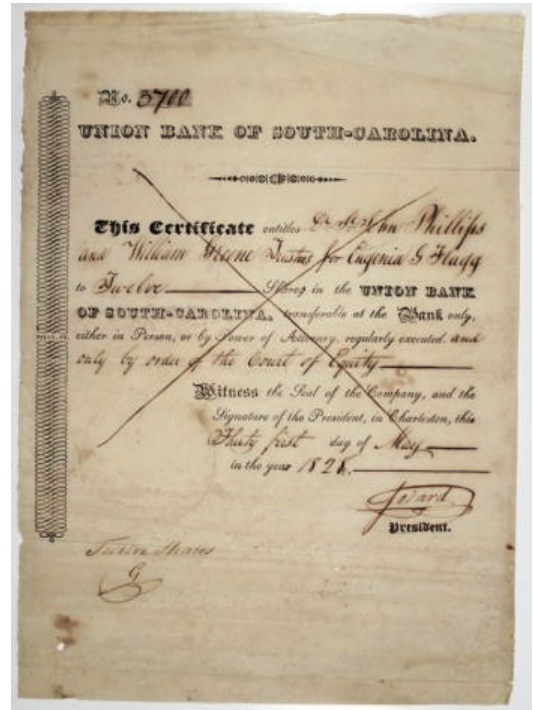 No. 3700
UNION BANK OF SOUTH-CAROLINA.
This Certificate entitles John Phillips
and William Greene Trustees for Eugenia G Flagg
to Twelve Shares in the UNION BANK
OF SOUTH-CAROLINA, transferable at the Bank only,
either in Person, or by Power of Attorney, regularly executed and
only by order of the Court of Equity
Witness the Seal of the Company, and the
Signature of the President, in Charleston, this
Thirty first day of May
in the year 1828.
President.
Twelve Shares
G